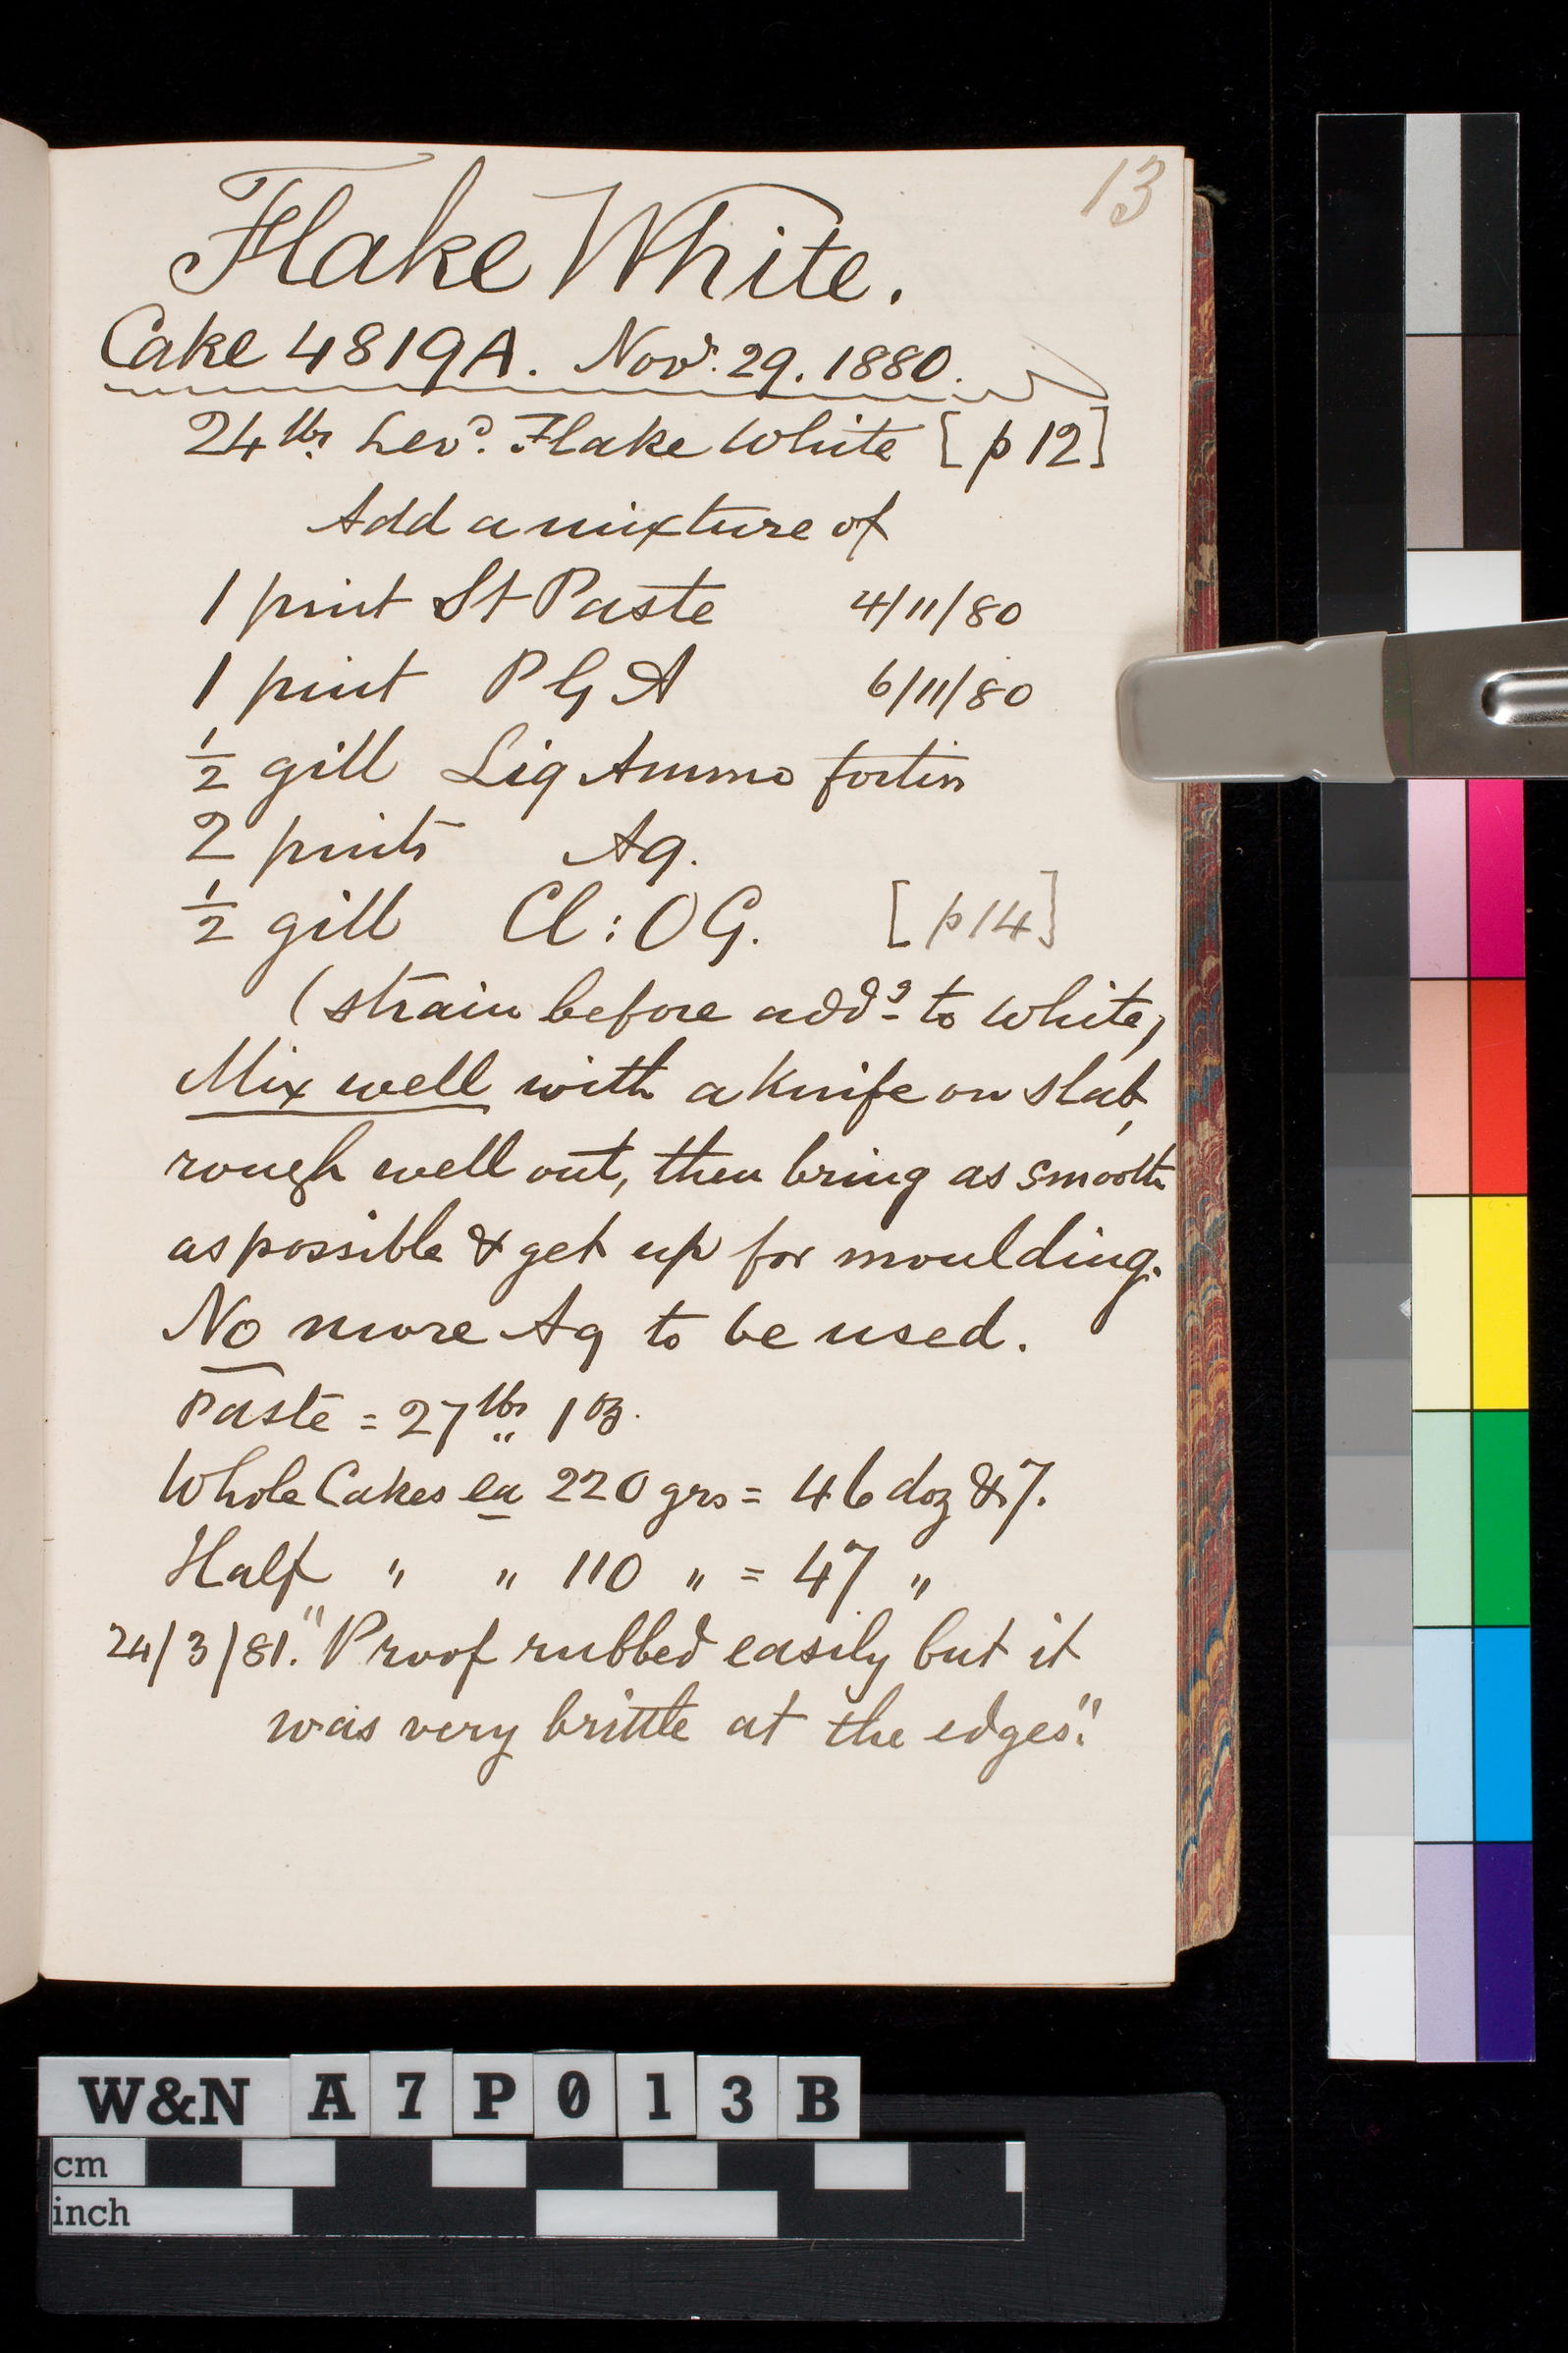 13
Flake White.
Cake 4819A. Novr. 29. 1880.
24 lbs Levd. Flake White [p 12]
Add a mixture of
1 pint St Paste 4/11/80
1 pint P G A 6/11/80
1/2 gill Liq Ammo fortis
2 pints Aq.
1/2 gill Cl: O G. [p 14]
(strain before addg to white)
Mix well with a knife on slab,
rough well out, then bring as smooth
as possible & get up for moulding.
No more Aq to be used.
Paste = 27 lbs 1 oz.
Whole Cakes ea 220 grs = 46 doz & 7.
Half " " 110 " = 47 "
24/3/81. "Proof rubbed easily but it
was very brittle at the edges."
W&N A7P013B
cm
inch